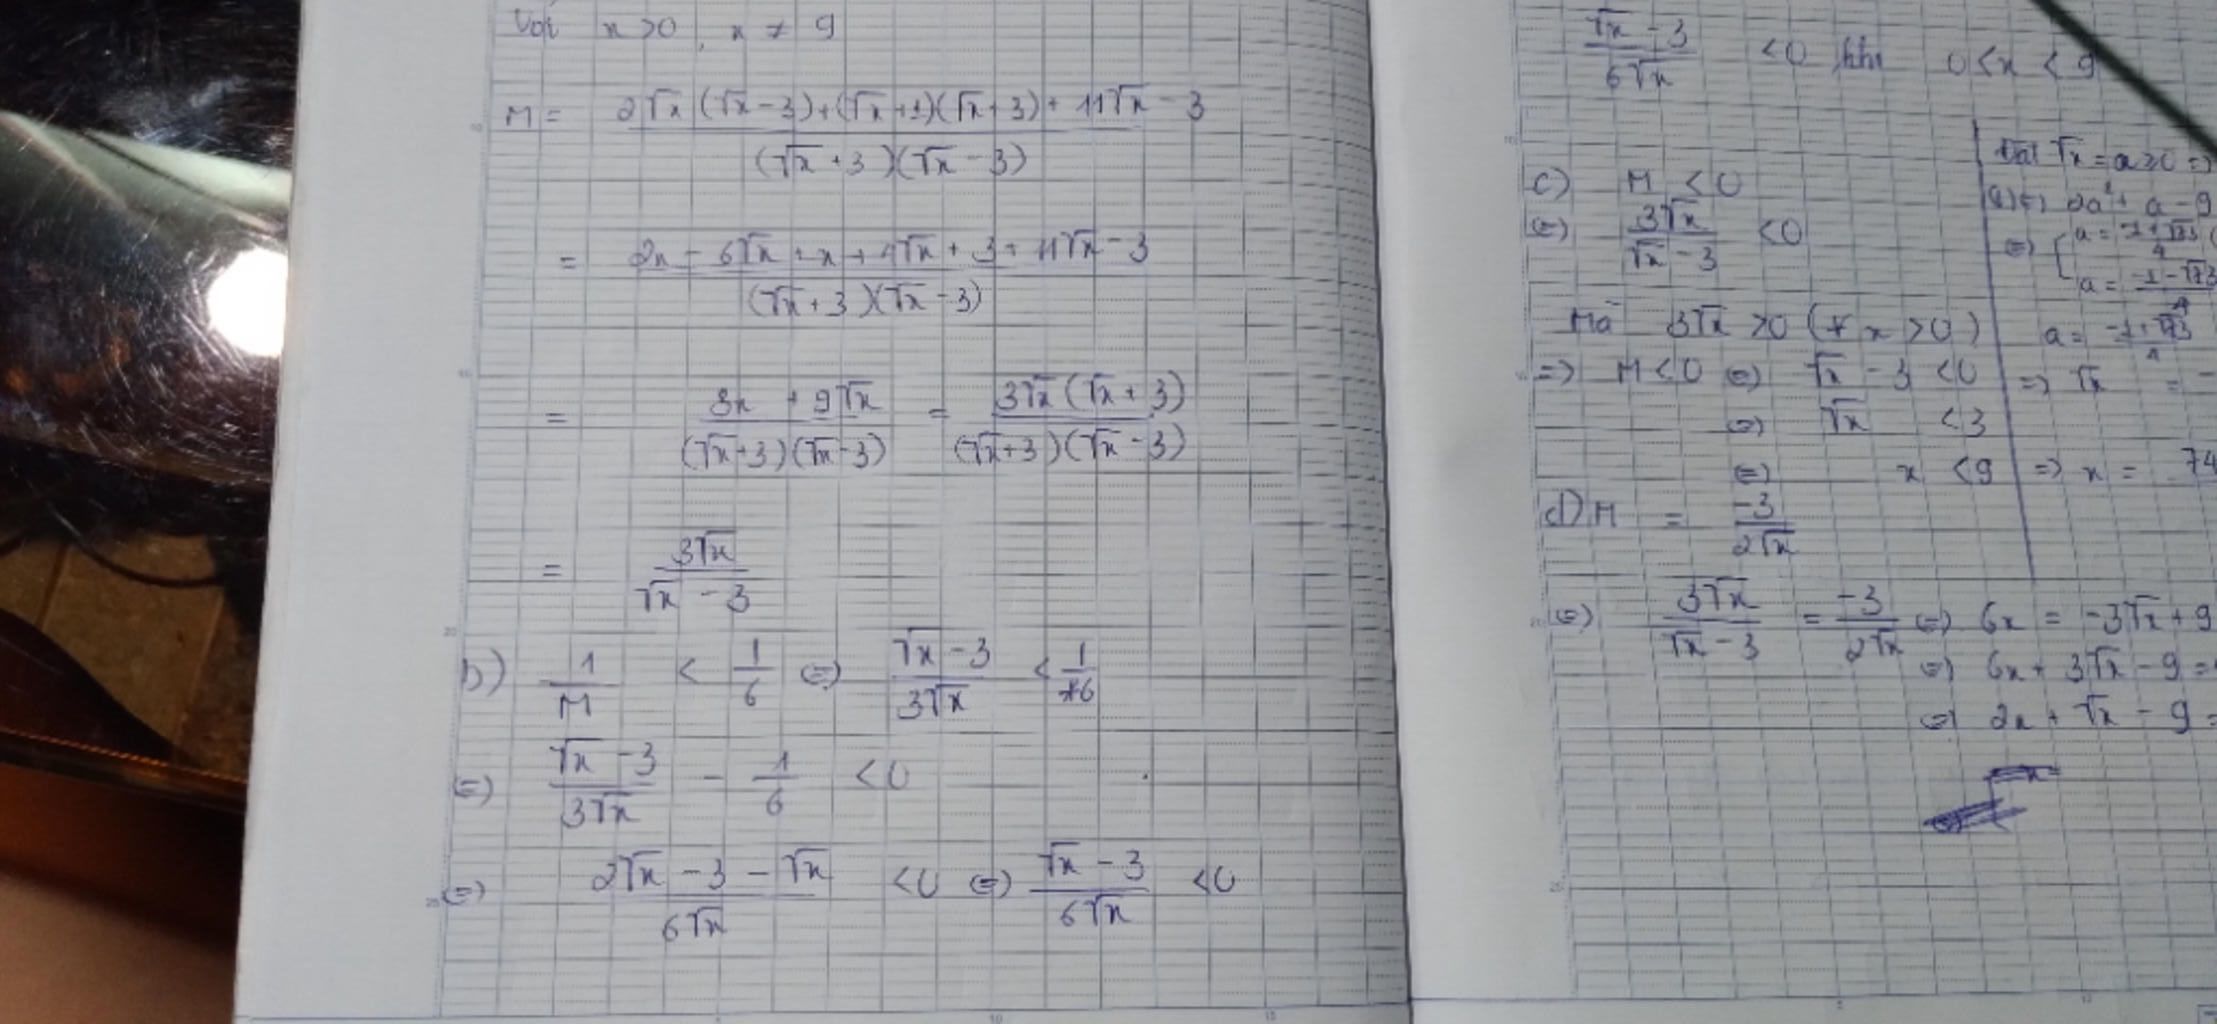 Với x > 0, x ≠ 9
M = (2√x(√x − 3) + (√x + 1)(√x + 3) + 11√x − 3) / ((√x + 3)(√x − 3))
= (2x − 6√x + x + 4√x + 3 + 11√x − 3) / ((√x + 3)(√x − 3))
= (3x + 9√x) / ((√x + 3)(√x − 3)) = (3√x(√x + 3)) / ((√x + 3)(√x − 3))
= 3√x / (√x − 3)
b) 1/M < 1/6 (=) (√x − 3) / (3√x) < 1/6
(=) (√x − 3) / (3√x) − 1/6 < 0
(=) (2√x − 3 − √x) / (6√x) < 0 (=) (√x − 3) / (6√x) < 0
(√x − 3) / (6√x) < 0 khi 0 < x < 9
c) M < 0
(=) 3√x / (√x − 3) < 0
Mà 3√x > 0 (∀ x > 0)
=) M < 0 (=) √x − 3 < 0
(=) √x < 3
(=) x < 9
d) M = −3 / (2√x)
(=) 3√x / (√x − 3) = −3 / (2√x) (=) 6x = −3√x + 9
(=) 6x + 3√x − 9 =
(=) 2x + √x − 9 =
Đặt √x = a > 0 =)
(=) 2a² + a − 9
(=) [ a =
a = (−1 − √73) / 4
a = (−1 + √73) / 4
=) √x = −
=) x = 74